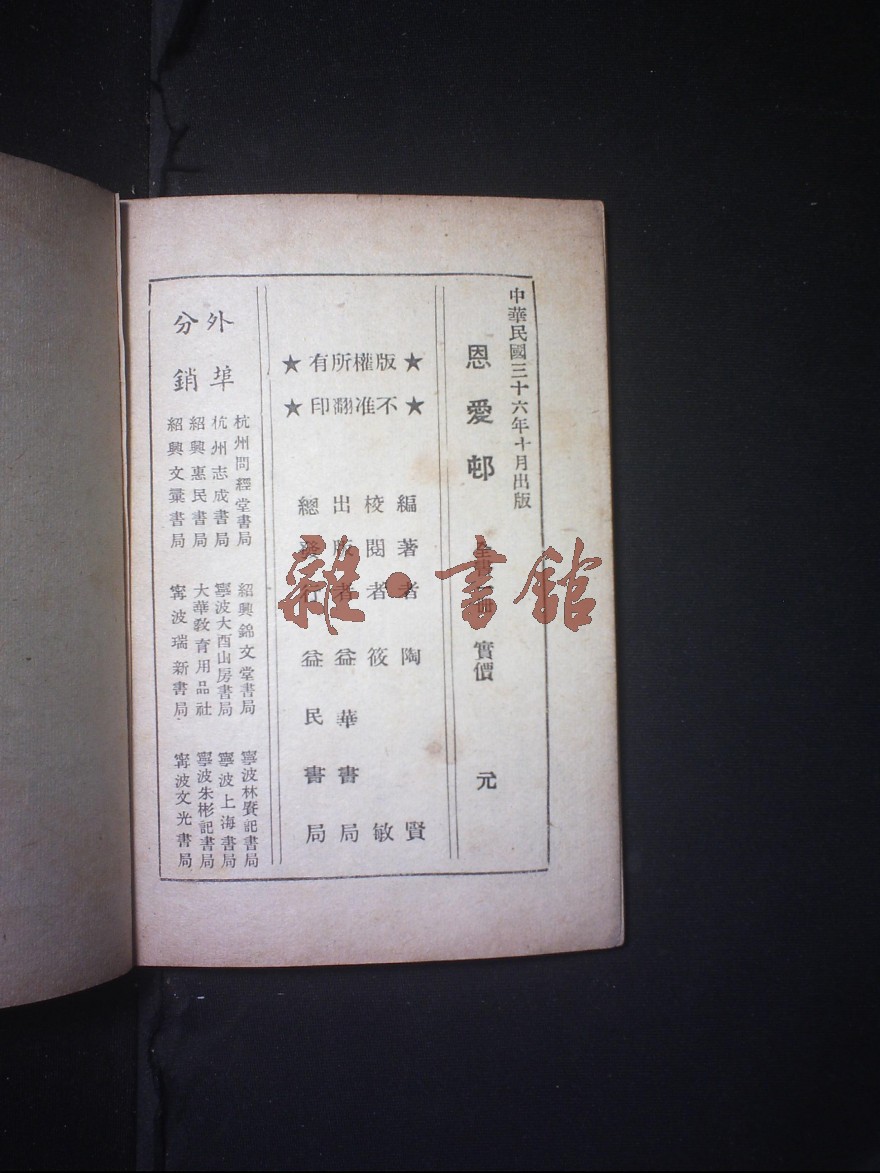 中華民國三十六年十月出版
恩愛邨 全書一冊 實價 元
★版權所有★
★不准翻印★
編著者 陶賢
校閱者 筱敏
出版者 益華書局
總發行 益民書局
外埠
分銷
杭州問經堂書局
杭州志成書局
紹興惠民書局
紹興文彙書局
紹興錦文堂書局
寧波大酉山房書局
大華敎育用品社
寧波瑞新書局
寧波林賡記書局
寧波上海書局
寧波朱彬記書局
寧波文光書局
雜·書館